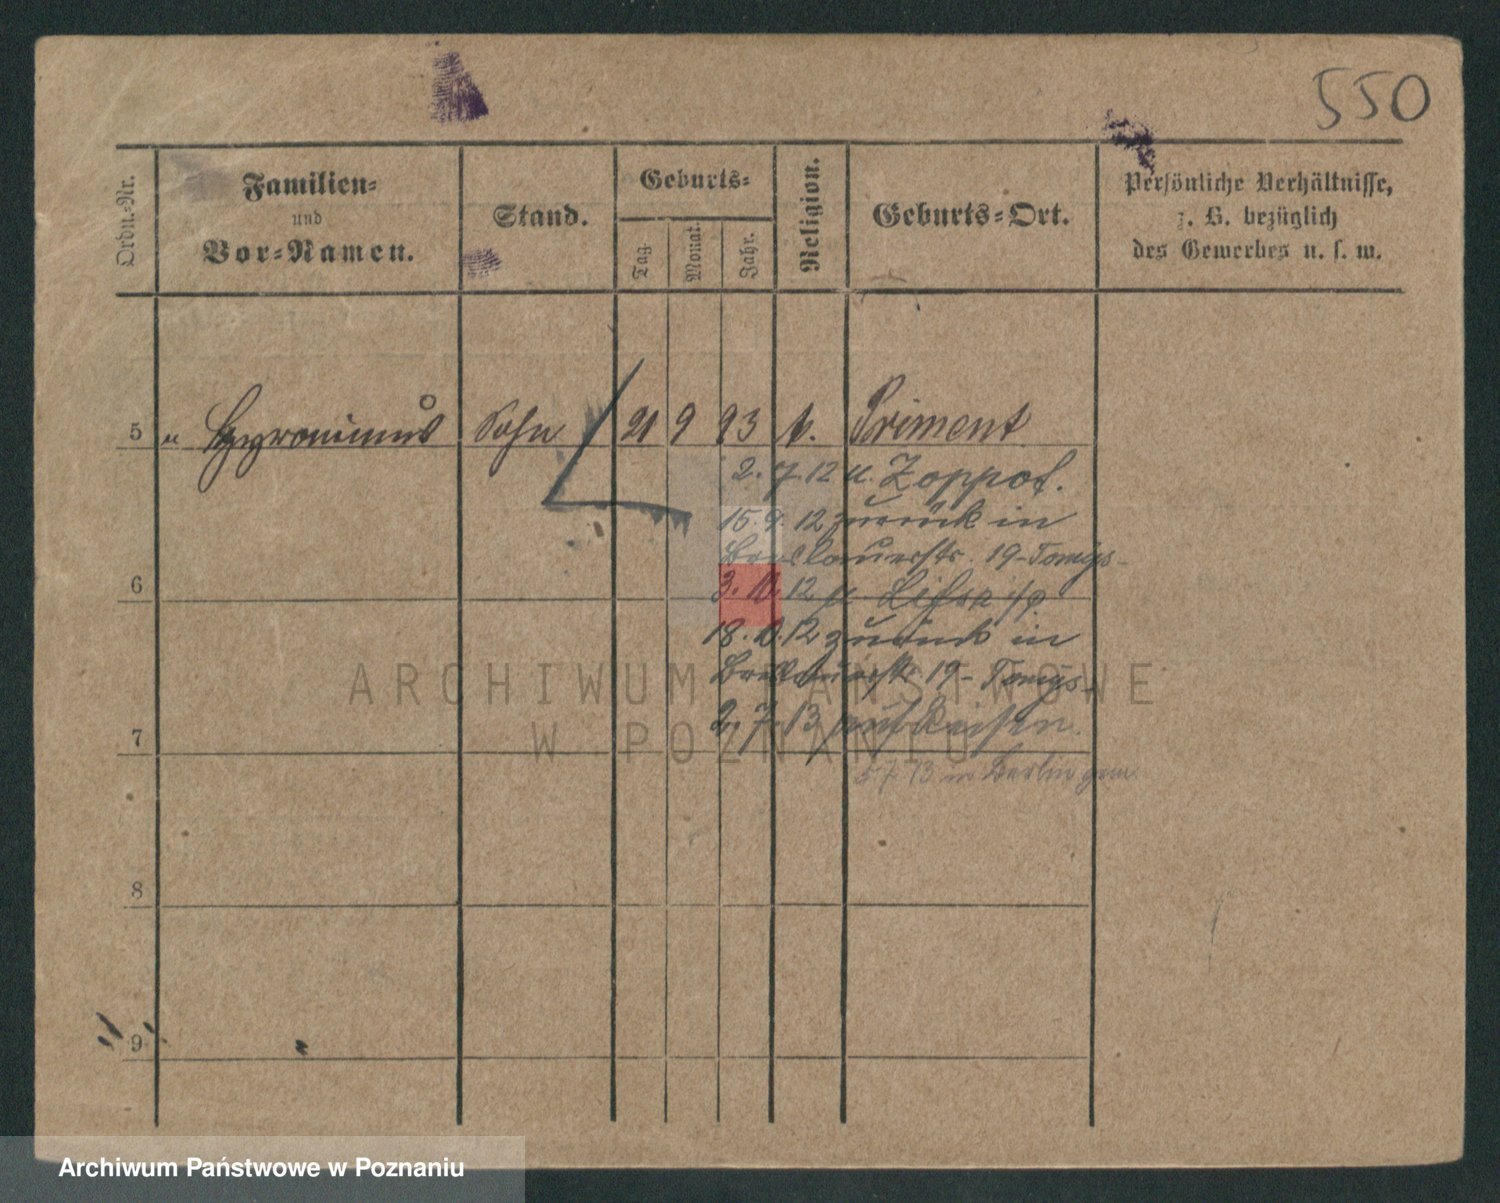 550
Ordn.-Nr.
Familien-
und
Vor-Namen.
Stand.
Geburts-
Tag.
Monat.
Jahr.
Religion.
Geburts-Ort.
Persönliche Verhältnisse,
z. B. bezüglich
des Gewerbes u. s. w.
5 " Hyronimus Sohn 21 9 93 k. Priment
2. 7. 12 n. Zoppot.
15. 9. 12 zurück in
Breslauerstr. 19-Tomys-
6
3. 10. 12 n Lissa i/p
18. 10. 12 zurück in
Breslauerstr 19- Tomys-
ARCHIWUM PAŃSTWOWE
W POZNANIU
2. 7. 13 auf Reisen.
7
5. 7. 13 in Berlin gem.
8
9
Archiwum Państwowe w Poznaniu